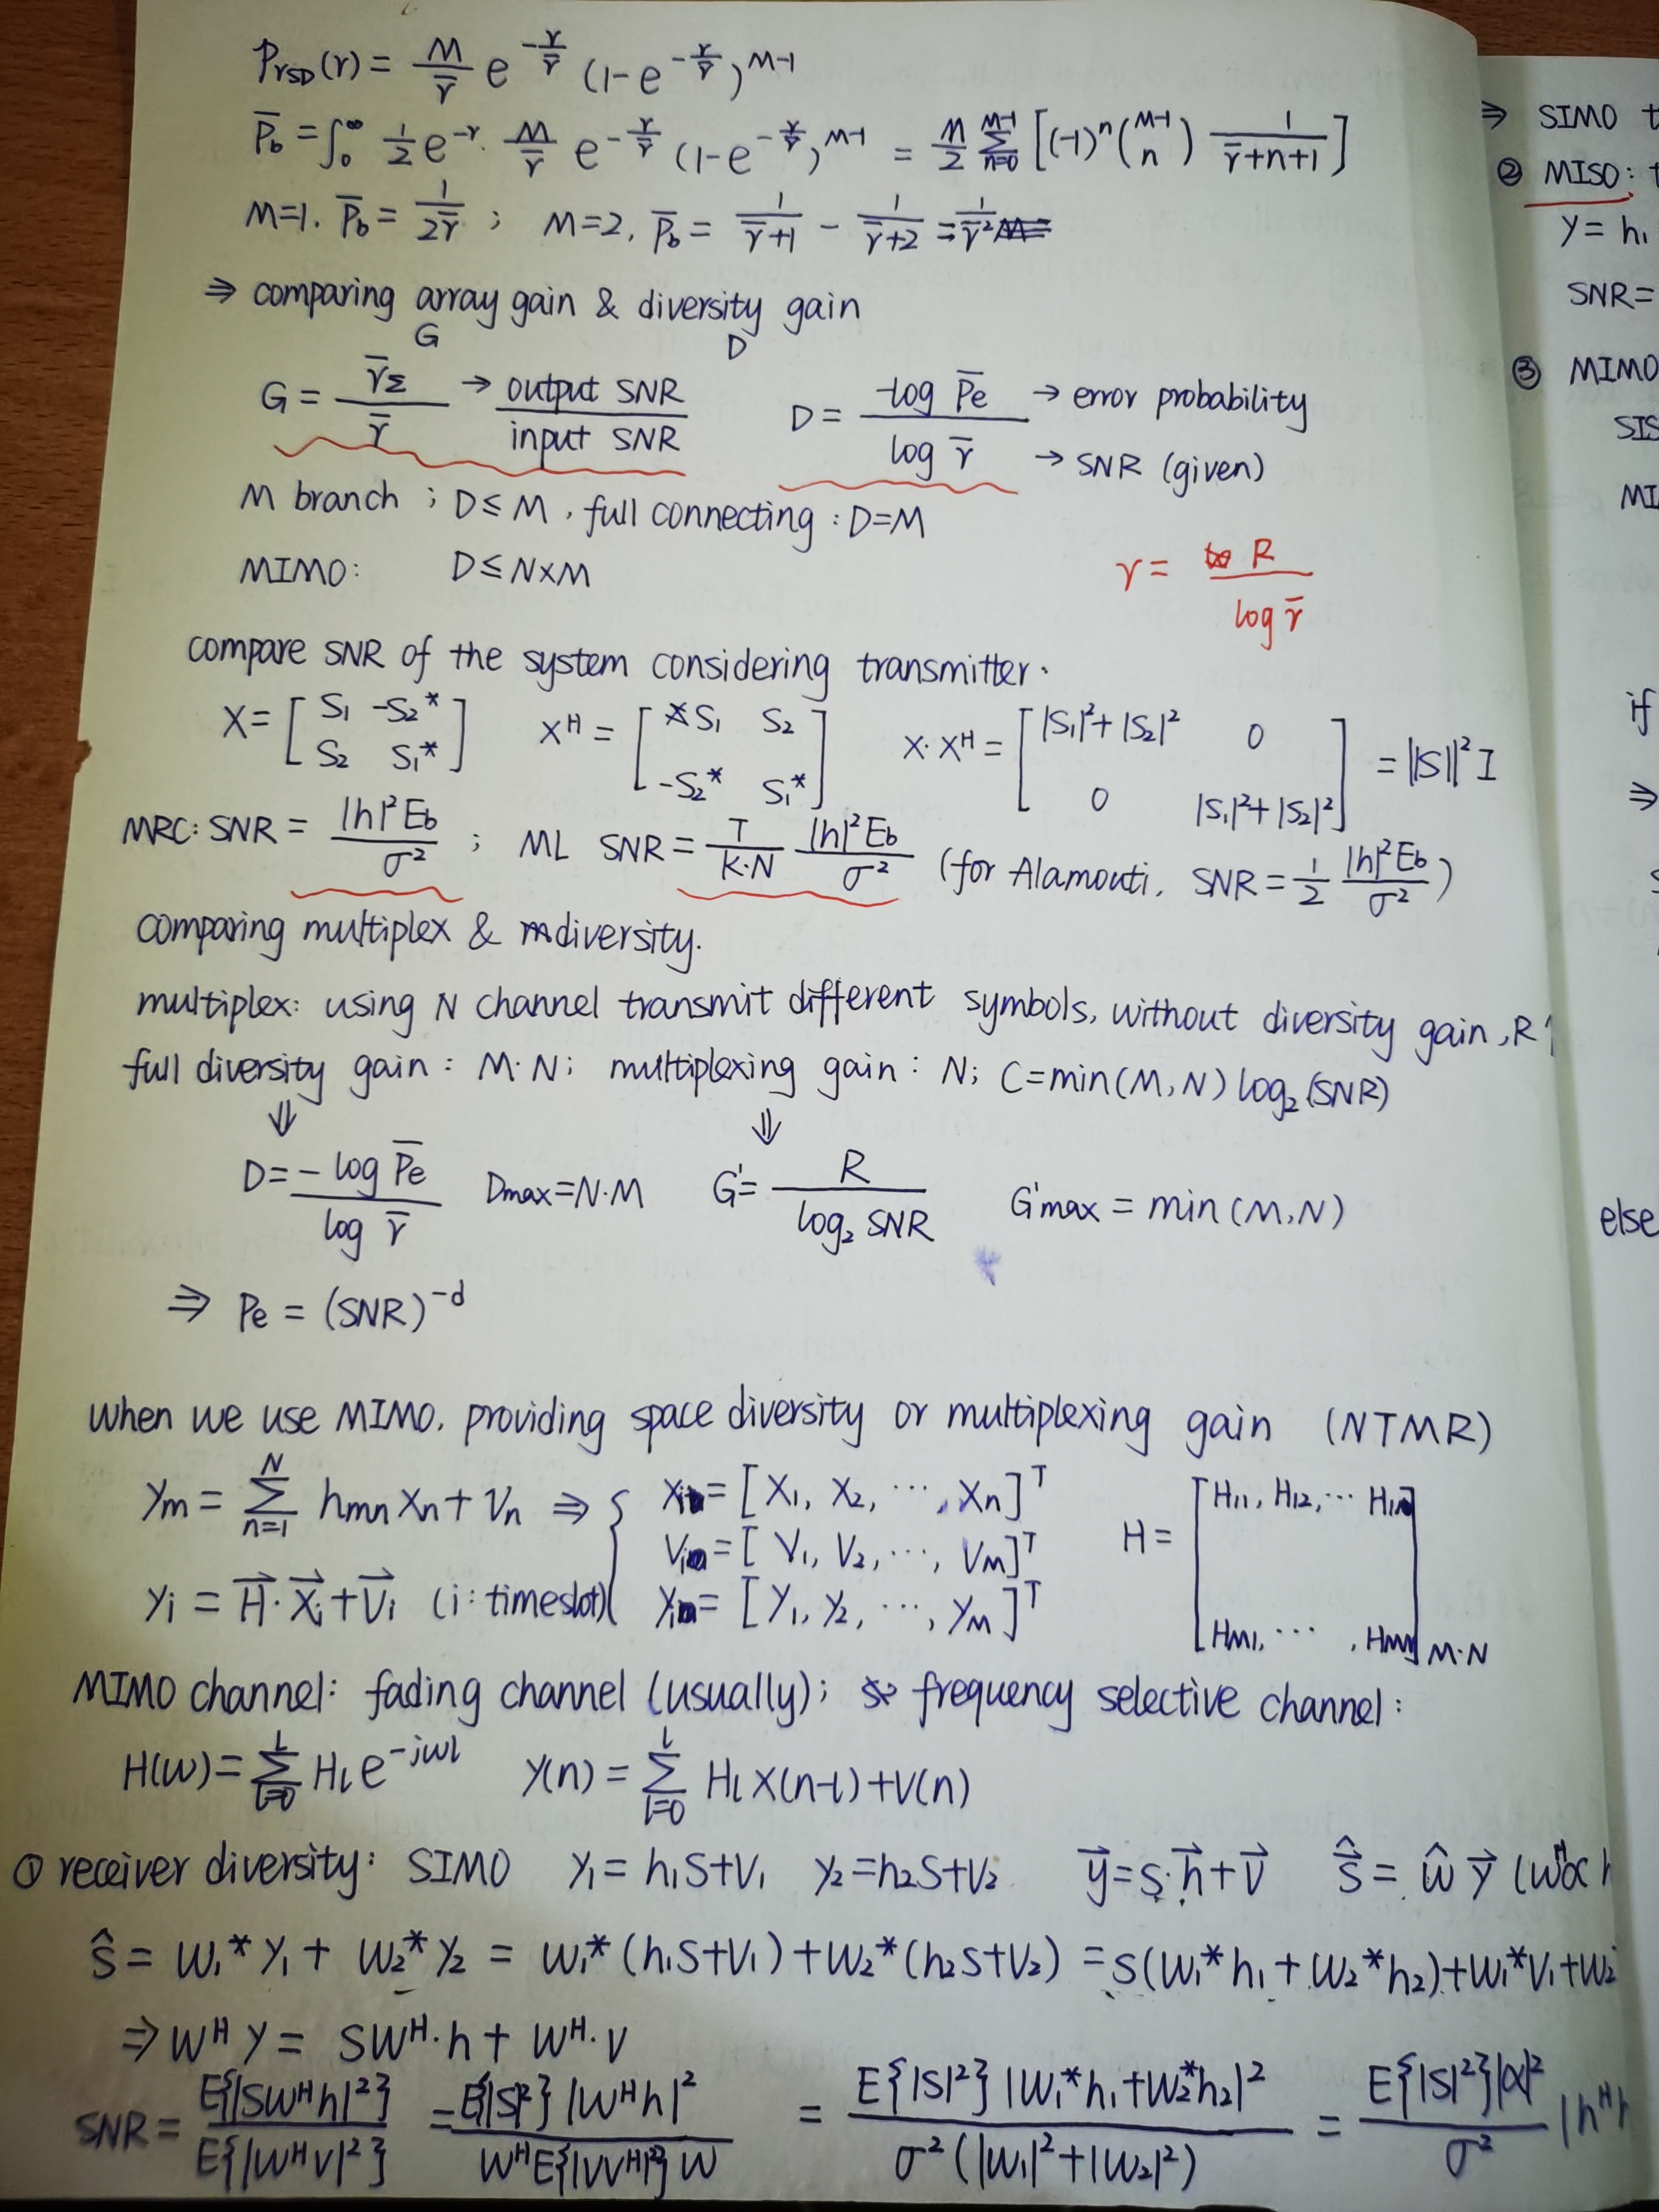 P_{γSD}(γ) = \frac{M}{\bar{γ}} e^{-\frac{γ}{\bar{γ}}} (1-e^{-\frac{γ}{\bar{γ}}})^{M-1}
\bar{P_b} = ∫_0^∞ \frac{1}{2} e^{-γ} · \frac{M}{\bar{γ}} e^{-\frac{γ}{\bar{γ}}} (1-e^{-\frac{γ}{\bar{γ}}})^{M-1} = \frac{M}{2} \sum_{n=0}^{M-1} [(-1)^n \binom{M-1}{n} \frac{1}{\bar{γ}+n+1}]
M=1. \bar{P_b} = \frac{1}{2\bar{γ}} ; M=2, \bar{P_b} = \frac{1}{\bar{γ}+1} - \frac{1}{\bar{γ}+2} = \frac{1}{\bar{γ}^2}
⇒ comparing array gain & diversity gain
G D
G = \frac{\bar{γ}_Σ}{\bar{γ}} → \frac{output SNR}{input SNR} D = \frac{-log \bar{Pe}}{log \bar{γ}} → error probability
→ SNR (given)
M branch ; D ≤ M, full connecting : D=M
MIMO: D ≤ N×M
γ = \frac{R}{log \bar{γ}}
compare SNR of the system considering transmitter.
X = [S_1 -S_2^* ; S_2 S_1^*] X^H = [S_1 S_2 ; -S_2^* S_1^*] X·X^H = [|S_1|^2+|S_2|^2 0 ; 0 |S_1|^2+|S_2|^2] = ||S||^2 I
MRC: SNR = \frac{|h|^2 E_b}{σ^2} ; ML SNR = \frac{T}{K·N} \frac{|h|^2 E_b}{σ^2} (for Alamouti, SNR = \frac{1}{2} \frac{|h|^2 E_b}{σ^2})
Comparing multiplex & diversity.
multiplex: using N channel transmit different symbols, without diversity gain, R↑
full diversity gain : M·N; multiplexing gain : N; C=min(M,N) log_2(SNR)
⇓ ⇓
D = \frac{-log \bar{Pe}}{log \bar{γ}} Dmax=N·M G' = \frac{R}{log_2 SNR} G'max = min(M,N)
⇒ Pe = (SNR)^{-d}
when we use MIMO, providing space diversity or multiplexing gain (NTMR)
y_m = \sum_{n=1}^{N} h_{mn} x_n + v_n ⇒ { X_i = [X_1, X_2, ···, X_n]^T
V_i = [V_1, V_2, ···, V_M]^T
y_i = \vec{H}·\vec{X_i} + \vec{V_i} (i: timeslot) Y_i = [Y_1, Y_2, ···, Y_M]^T
H = [H_{11}, H_{12}, ··· H_{1N} ; H_{M1}, ··· , H_{MN}]_{M·N}
MIMO channel: fading channel (usually); frequency selective channel:
H(w) = \sum_{l=0}^{L} H_l e^{-jwl} y(n) = \sum_{l=0}^{L} H_l X(n-l) + V(n)
① receiver diversity: SIMO y_1 = h_1 S + V_1 y_2 = h_2 S + V_2 \vec{y} = S·\vec{h} + \vec{V} \hat{S} = \hat{w} \vec{y} (w^H ∝ h
\hat{S} = W_1^* y_1 + W_2^* y_2 = W_1^* (h_1 S + V_1) + W_2^* (h_2 S + V_2) = S(W_1^* h_1 + W_2^* h_2) + W_1^* V_1 + W_2
⇒ W^H y = S W^H · h + W^H · V
SNR = \frac{E{|S W^H h|^2}}{E{|W^H V|^2}} = \frac{E{|S|^2} |W^H h|^2}{W^H E{|VV^H|^2} W} = \frac{E{|S|^2} |W_1^* h_1 + W_2^* h_2|^2}{σ^2 (|W_1|^2 + |W_2|^2)} = \frac{E{|S|^2} |α|^2}{σ^2} |h^H h
⇒ SIMO t
② MISO: t
y = h_1
SNR =
③ MIMO
SIS
MI
if
⇒
else